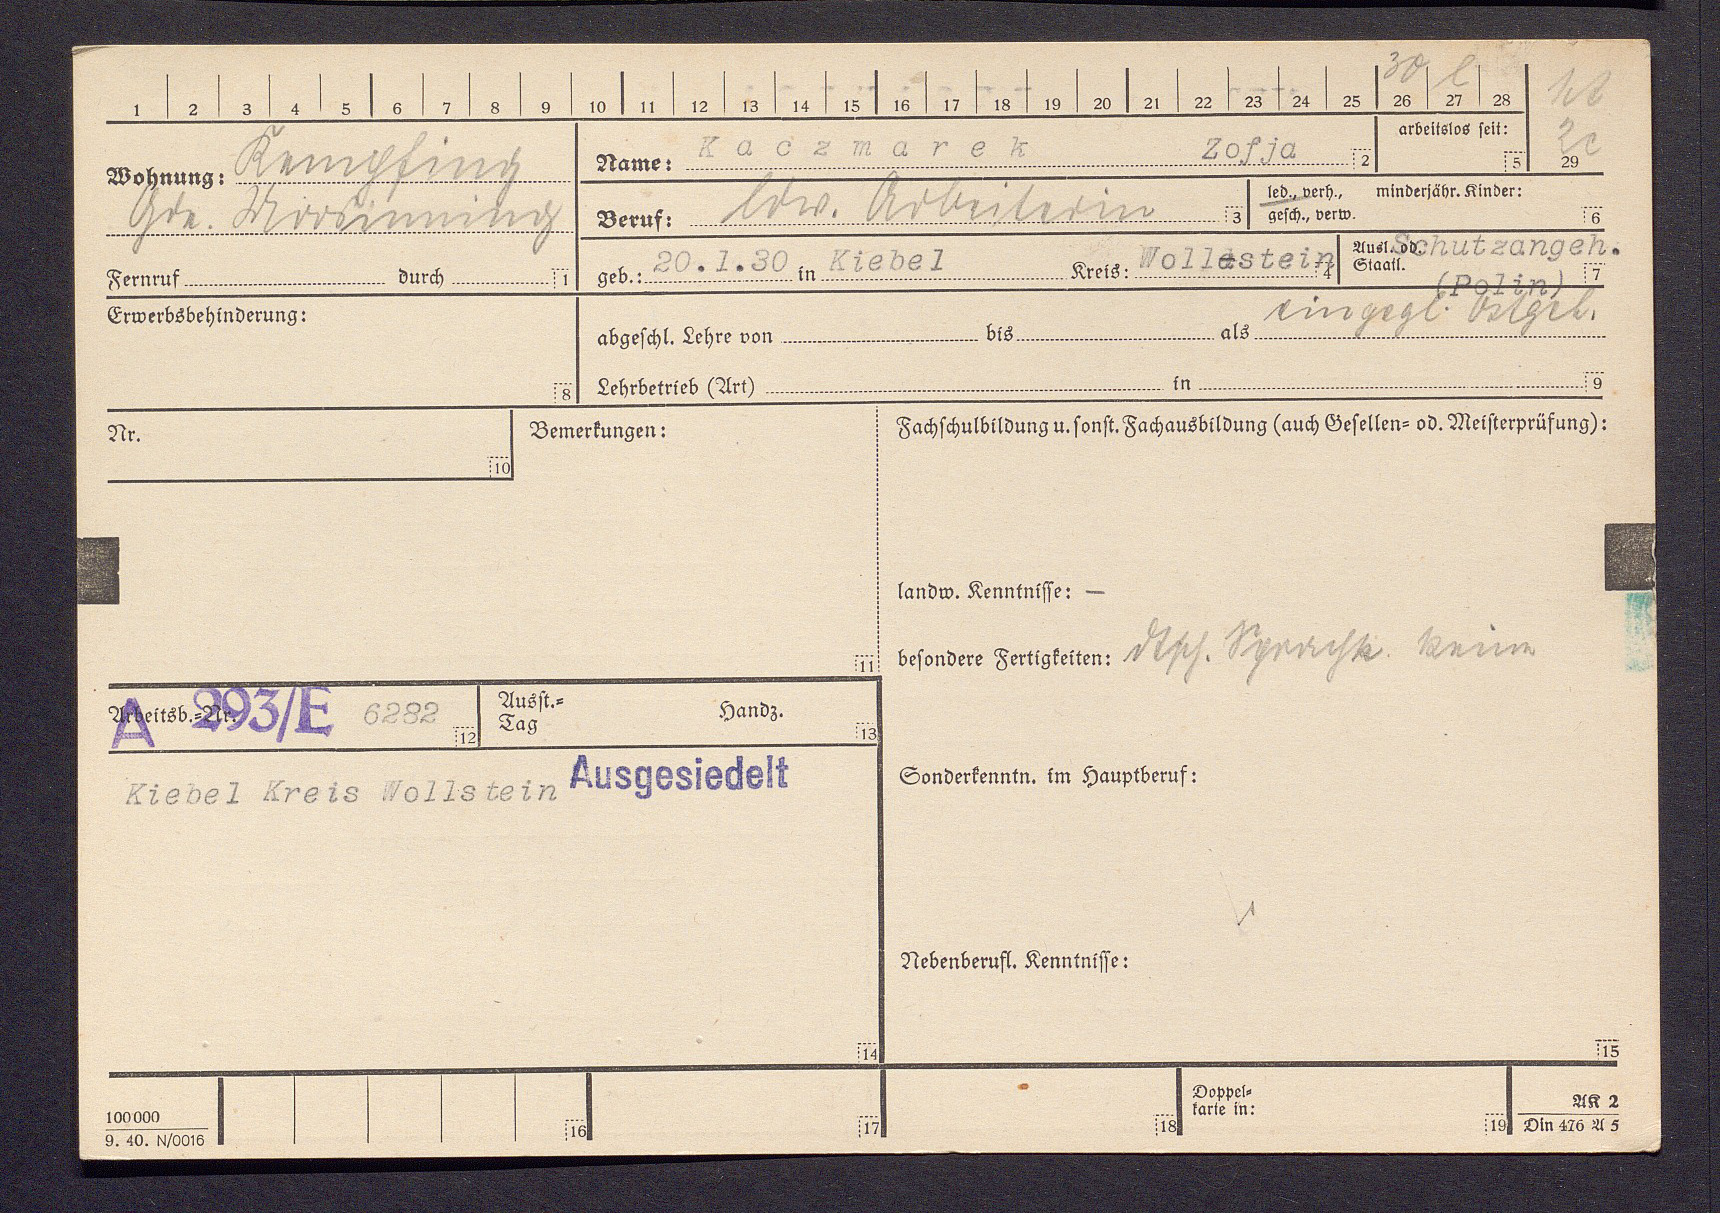 30 l
1 2 3 4 5 6 7 8 9 10 11 12 13 14 15 16 17 18 19 20 21 22 23 24 25 26 27 28
29
Wohnung: Kempfing
Gde. Moosinning
Fernruf durch 1
Name: Kaczmarek Zofja 2
arbeitslos seit: 5
Beruf: ldw. Arbeiterin 3
led., verh., minderjähr. Kinder:
gesch., verw. 6
geb.: 20.1.30 in Kiebel Kreis: Wollestein 4
Ausl. od. Schutzangeh.
Staatl. (Polin) 7
eingegl. Ostgeb.
Erwerbsbehinderung:
8
abgeschl. Lehre von bis als
Lehrbetrieb (Art) in 9
Nr.
10
Bemerkungen:
11
Fachschulbildung u. sonst. Fachausbildung (auch Gesellen= od. Meisterprüfung):
landw. Kenntnisse: —
besondere Fertigkeiten: dtsch. Sprachk. keine
Arbeitsb.=Nr. A 293/E 6282 12
Ausst.=
Tag Handz. 13
Kiebel Kreis Wollstein Ausgesiedelt
14
Sonderkenntn. im Hauptberuf:
Nebenberufl. Kenntnisse:
15
100000
9. 40. N/0016
16 17 18
Doppel=
karte in: 19
AK 2
Din 476 A 5